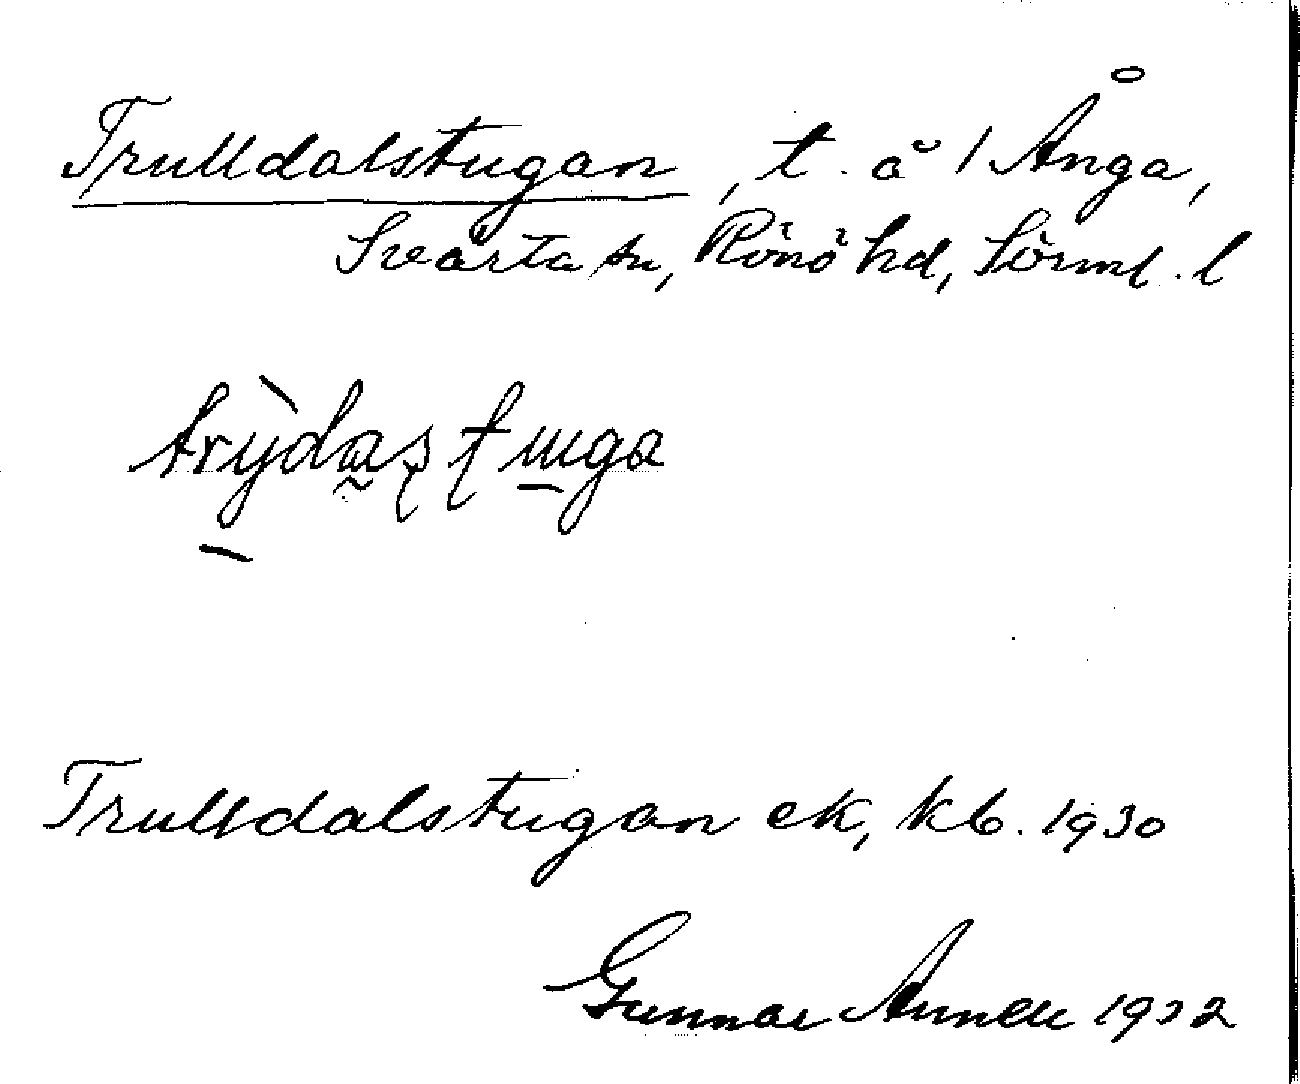 Trulldalstugan, t. å 1 Ånga,
Svärta sn, Rönö hd, Sörml. l
Trulldalstugan ek, kb. 1930
Gunnar 1932